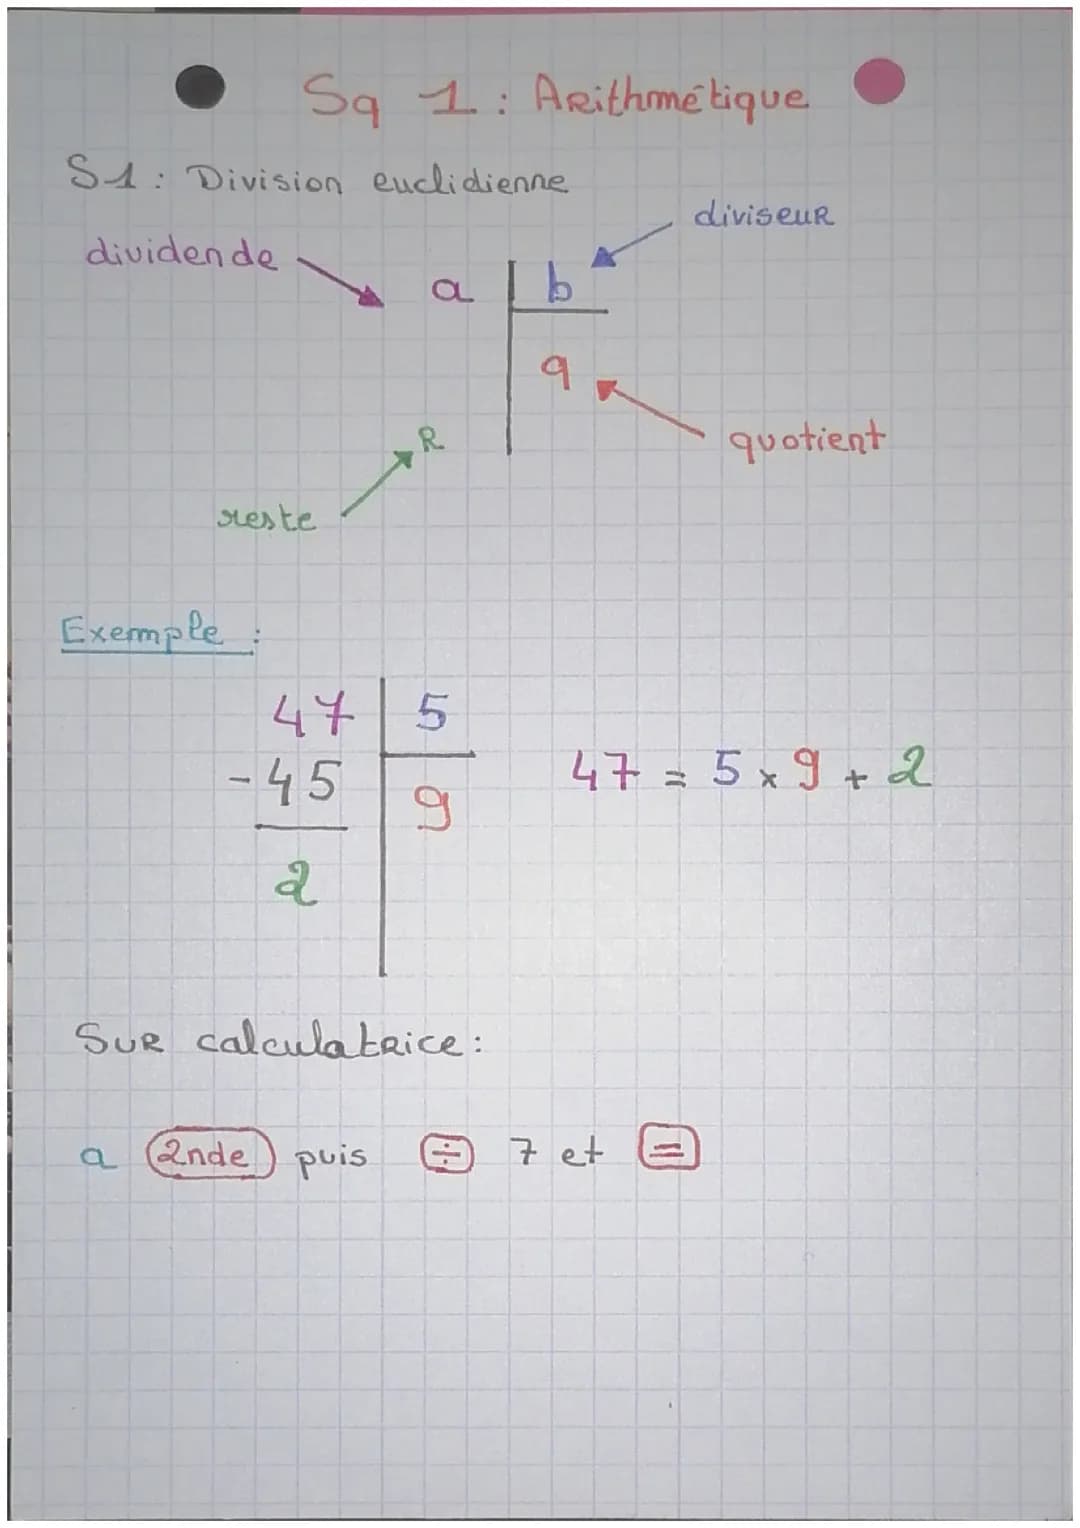 Sq 1 : Arithmétique
S1 : Division euclidienne
diviseur
dividende
a b
q
R
quotient
reste
Exemple :
47 5
-45
9
47 = 5 x 9 + 2
2
Sur calculatrice :
a 2nde puis ÷ 7 et =